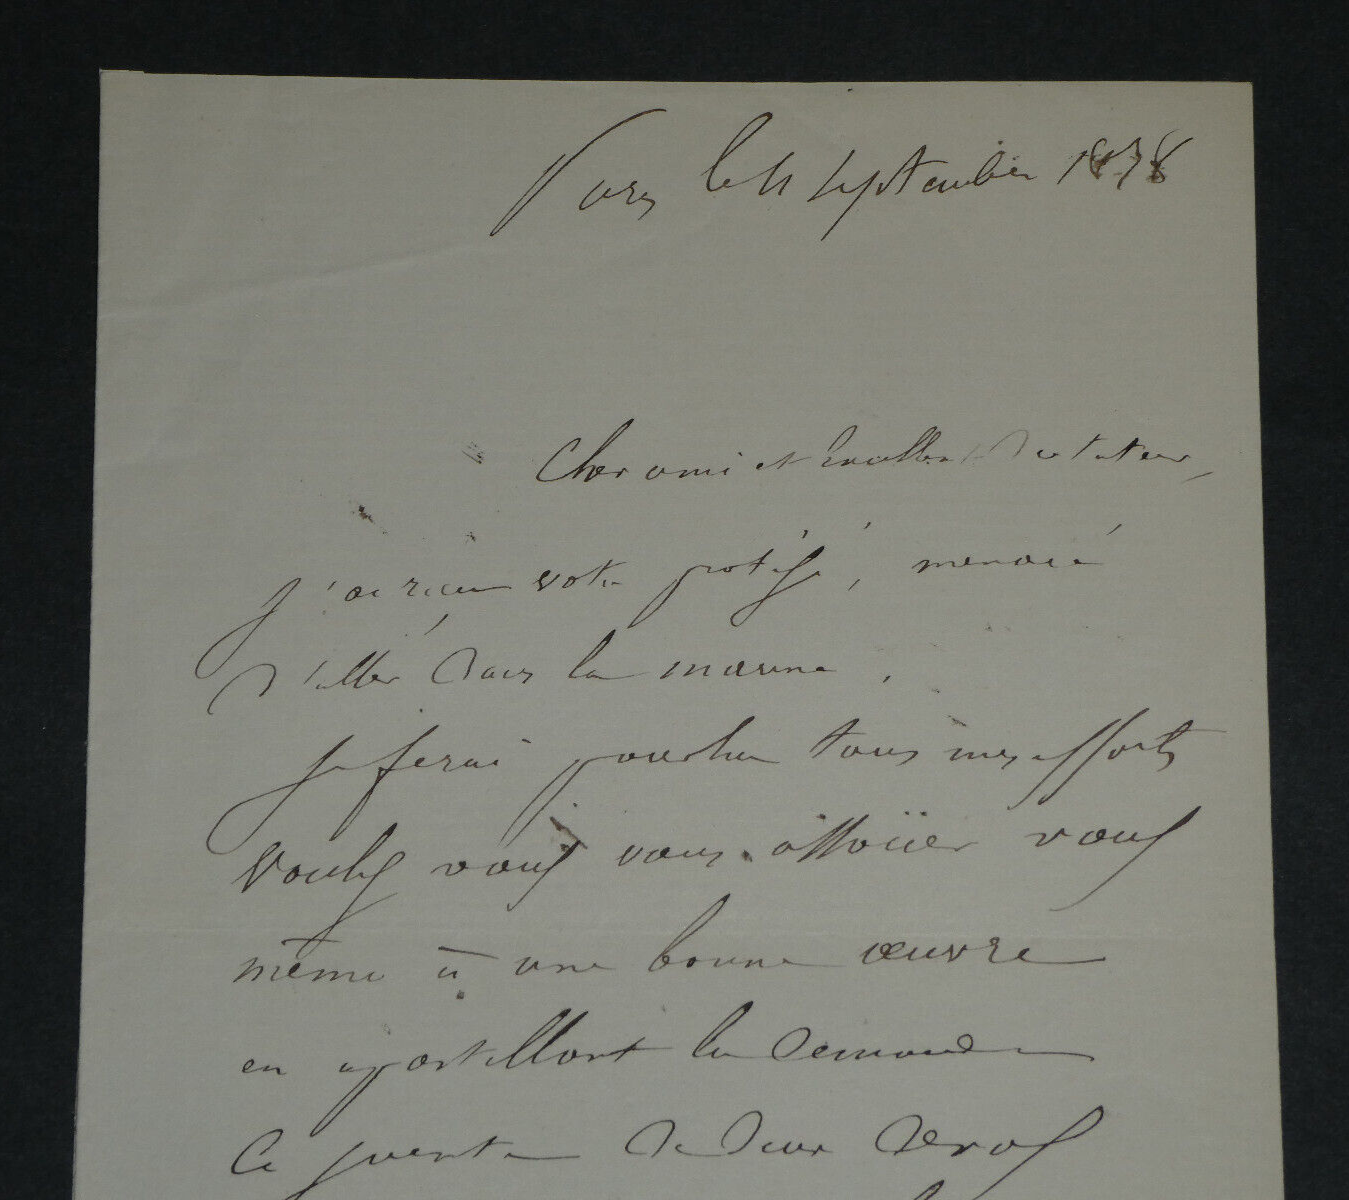 Paris le 11 septembre 1878
Cher ami et Excellent Docteur,
J'ai reçu votre protégé, menacé
d'aller dans la marine.
Je ferai pour lui tous mes efforts
Voulez vous vous associer vous
même à une bonne œuvre
en apostillant la demande
Ci jointe de deux